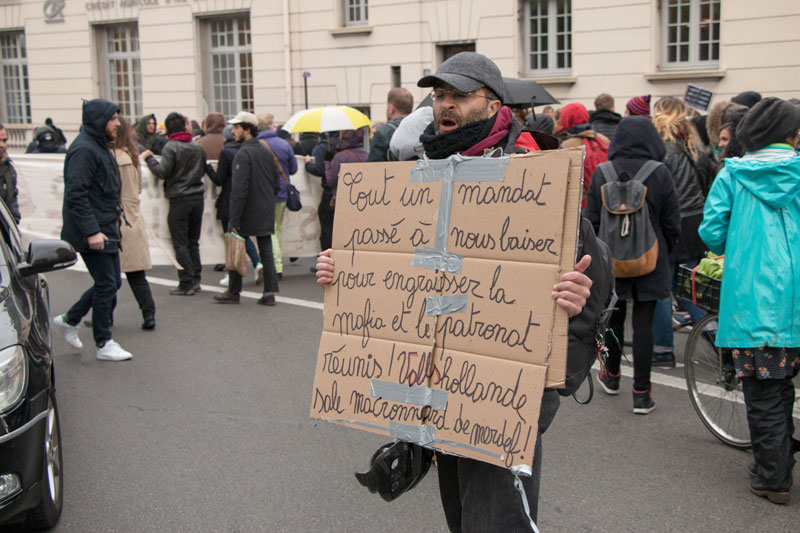 CRÉDIT AGRICOLE D'ILE
Tout un mandat
passé à nous baiser
pour engraisser la
mafia et le patronat
réunis ! Valls hollande
sale macronnard de merdef !